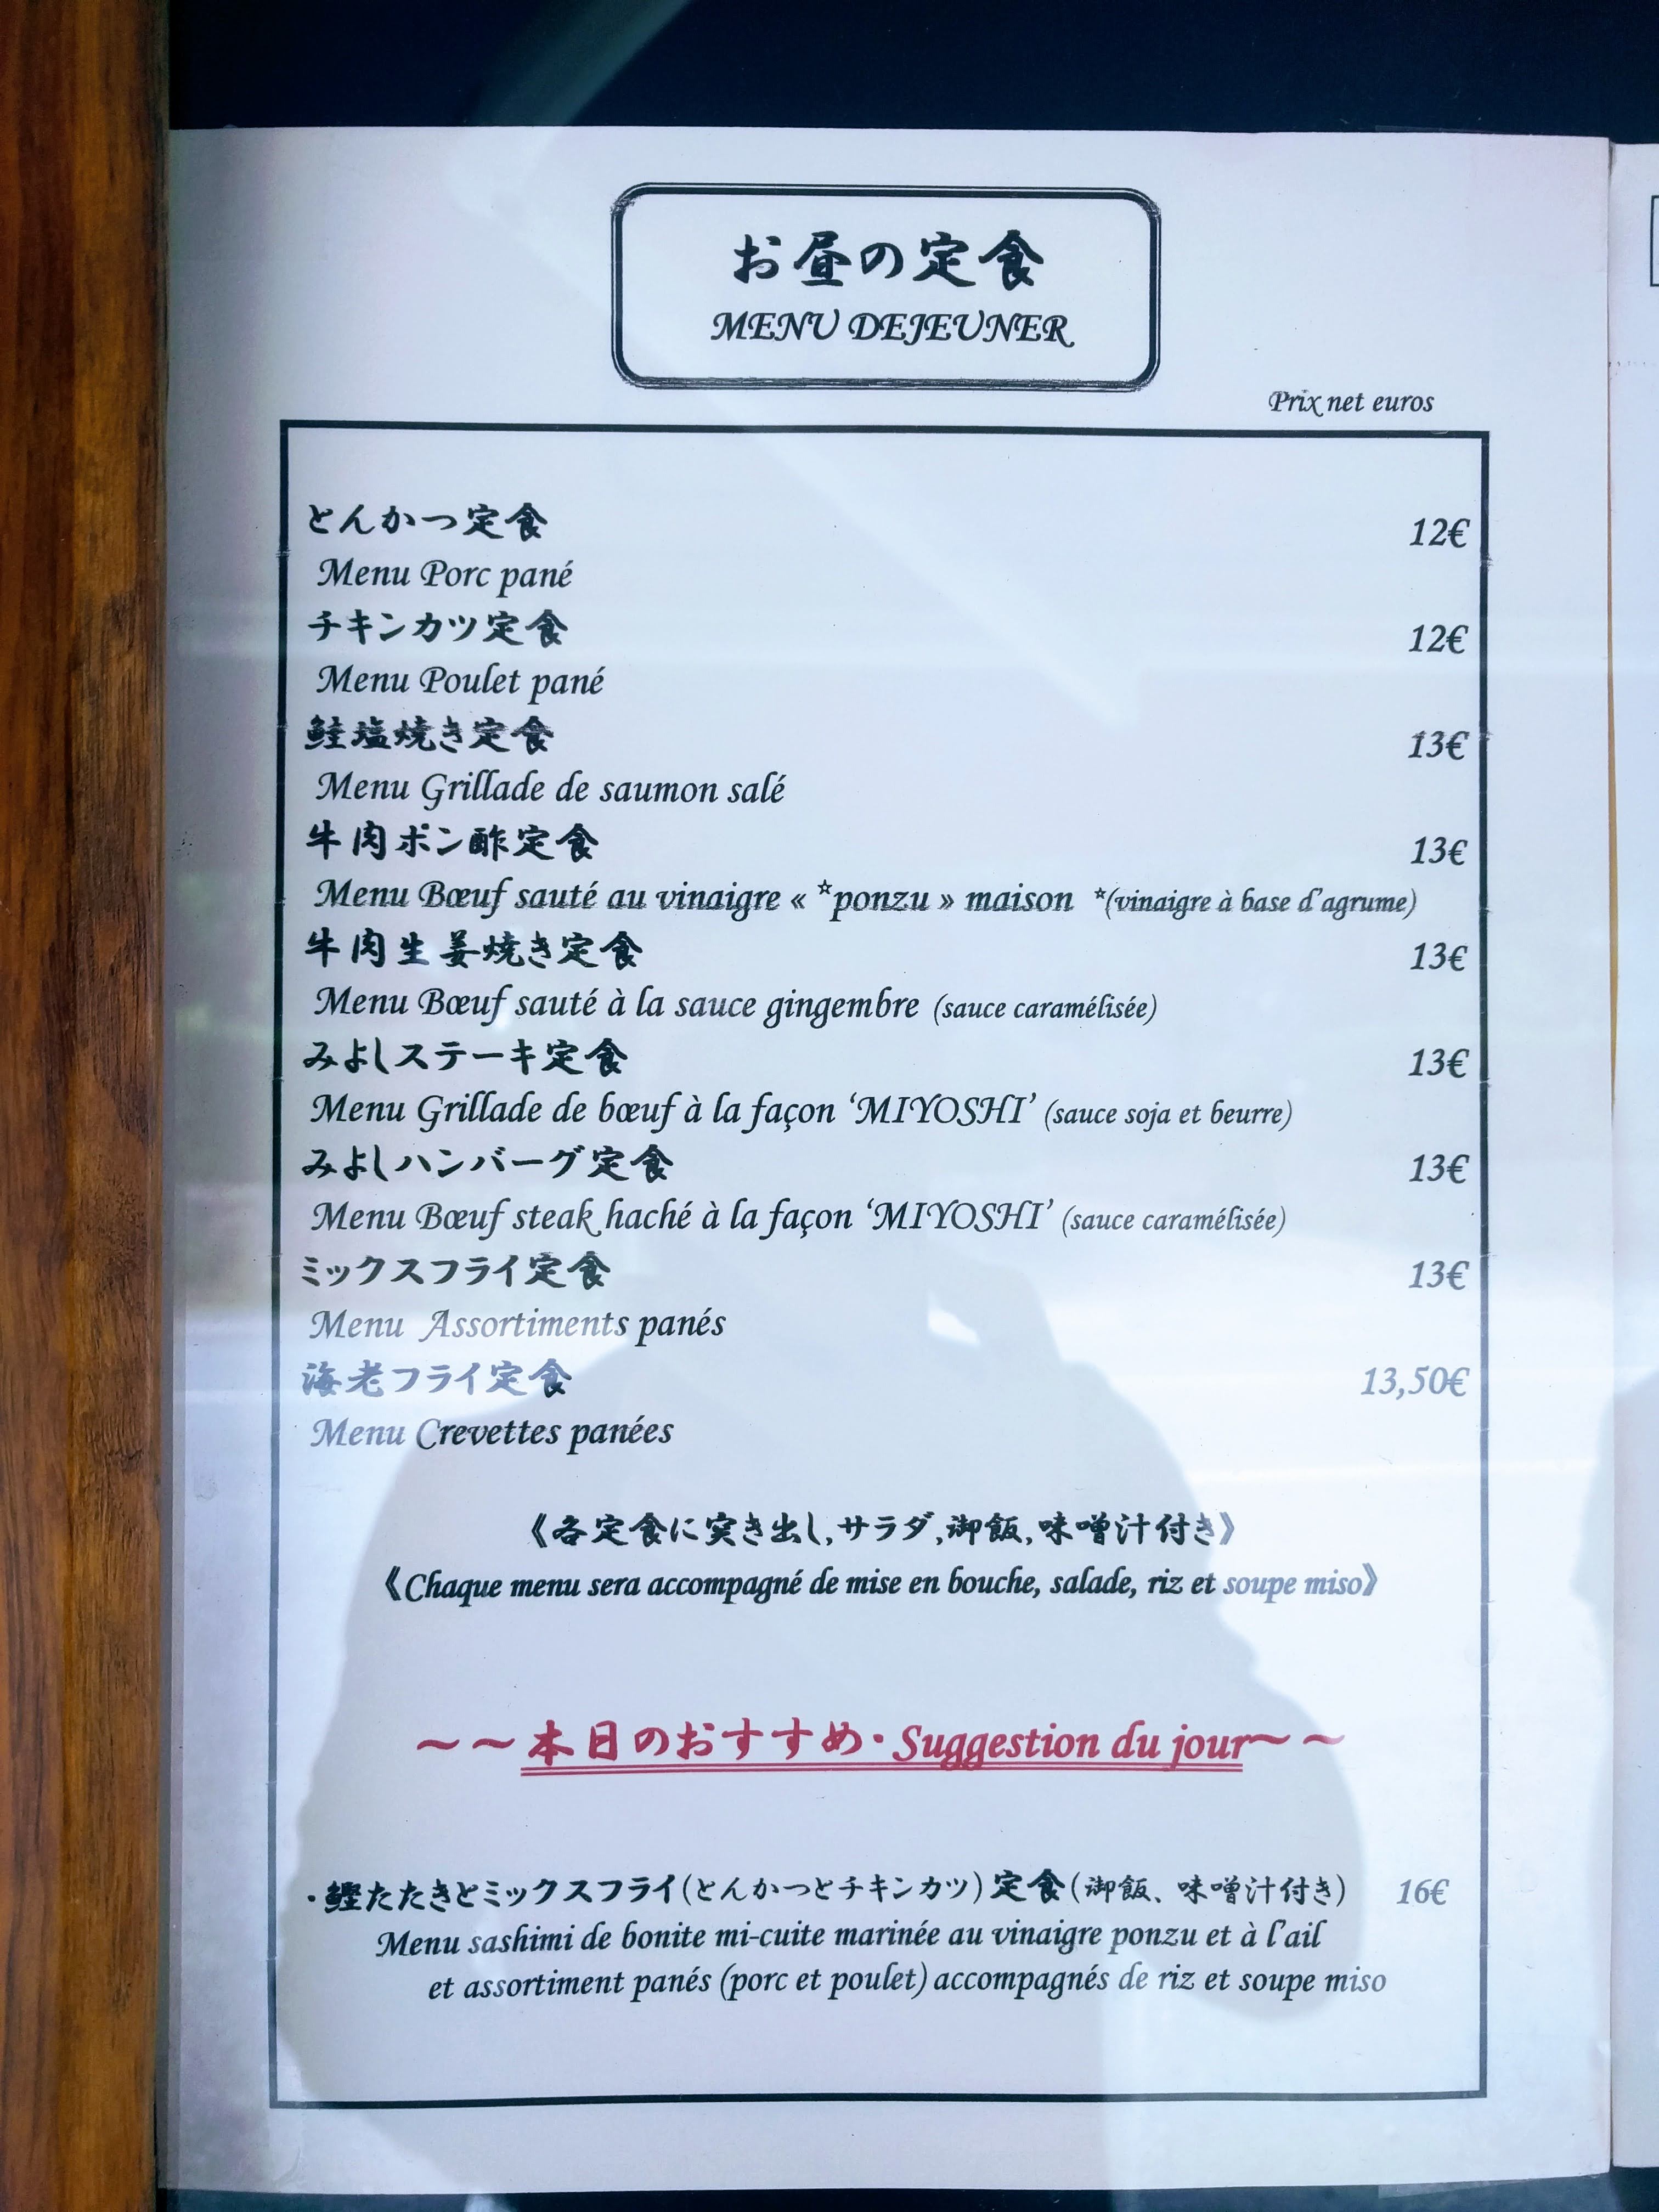 お昼の定食
MENU DEJEUNER
Prix net euros
とんかつ定食 12€
Menu Porc pané
チキンカツ定食 12€
Menu Poulet pané
鮭塩焼き定食 13€
Menu Grillade de saumon salé
牛肉ポン酢定食 13€
Menu Bœuf sauté au vinaigre « *ponzu » maison *(vinaigre à base d'agrume)
牛肉生姜焼き定食 13€
Menu Bœuf sauté à la sauce gingembre (sauce caramélisée)
みよしステーキ定食 13€
Menu Grillade de bœuf à la façon ‘MIYOSHI’ (sauce soja et beurre)
みよしハンバーグ定食 13€
Menu Bœuf steak haché à la façon ‘MIYOSHI’ (sauce caramélisée)
ミックスフライ定食 13€
Menu Assortiments panés
海老フライ定食 13,50€
Menu Crevettes panées
《各定食に突き出し,サラダ,御飯,味噌汁付き》
《Chaque menu sera accompagné de mise en bouche, salade, riz et soupe miso》
～～本日のおすすめ・Suggestion du jour～～
・鰹たたきとミックスフライ(とんかつとチキンカツ)定食(御飯、味噌汁付き) 16€
Menu sashimi de bonite mi-cuite marinée au vinaigre ponzu et à l'ail
et assortiment panés (porc et poulet) accompagnés de riz et soupe miso